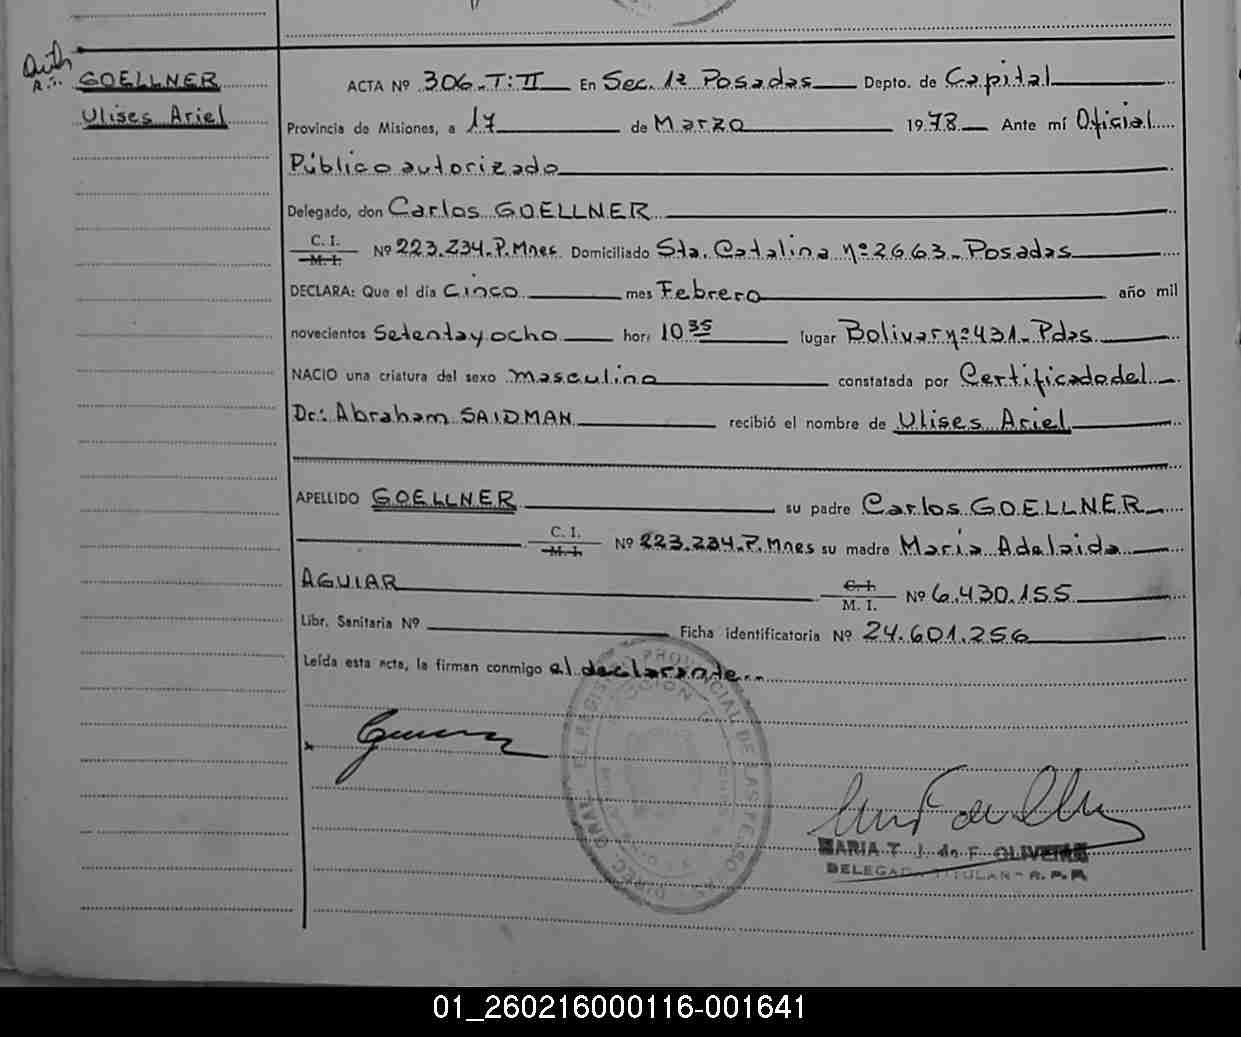 GOELLNER
Ulises Ariel
ACTA Nº 306. T: II En Sec. 1ª Posadas Depto. de Capital
Provincia de Misiones, a 17 de Marzo 1978 Ante mí Oficial
Público autorizado
Delegado, don Carlos GOELLNER
C. I.
M. I.
Nº 223.234. P. Mnes. Domiciliado Sta. Catalina nº 2663 - Posadas
DECLARA: Que el día Cinco mes Febrero año mil
novecientos Setenta y ocho hora 10 35 lugar Bolivar nº 431 - Pdas.
NACIO una criatura del sexo masculino constatada por Certificado del
Dr: Abraham SAIDMAN recibió el nombre de Ulises Ariel
APELLIDO GOELLNER su padre Carlos GOELLNER
C. I.
M. I.
Nº 223.234. P. Mnes su madre María Adelaida
AGUIAR
C. I.
M. I.
Nº 6.430.155
Libr. Sanitaria Nº Ficha identificatoria Nº 24.601.256
Leída esta acta, la firman conmigo el declarante..
PROVINCIAL DE LAS PERSO
MARIA T. J. de F. OLIVEIRA
DELEGADA TITULAR - R. P. P.
01_260216000116-001641